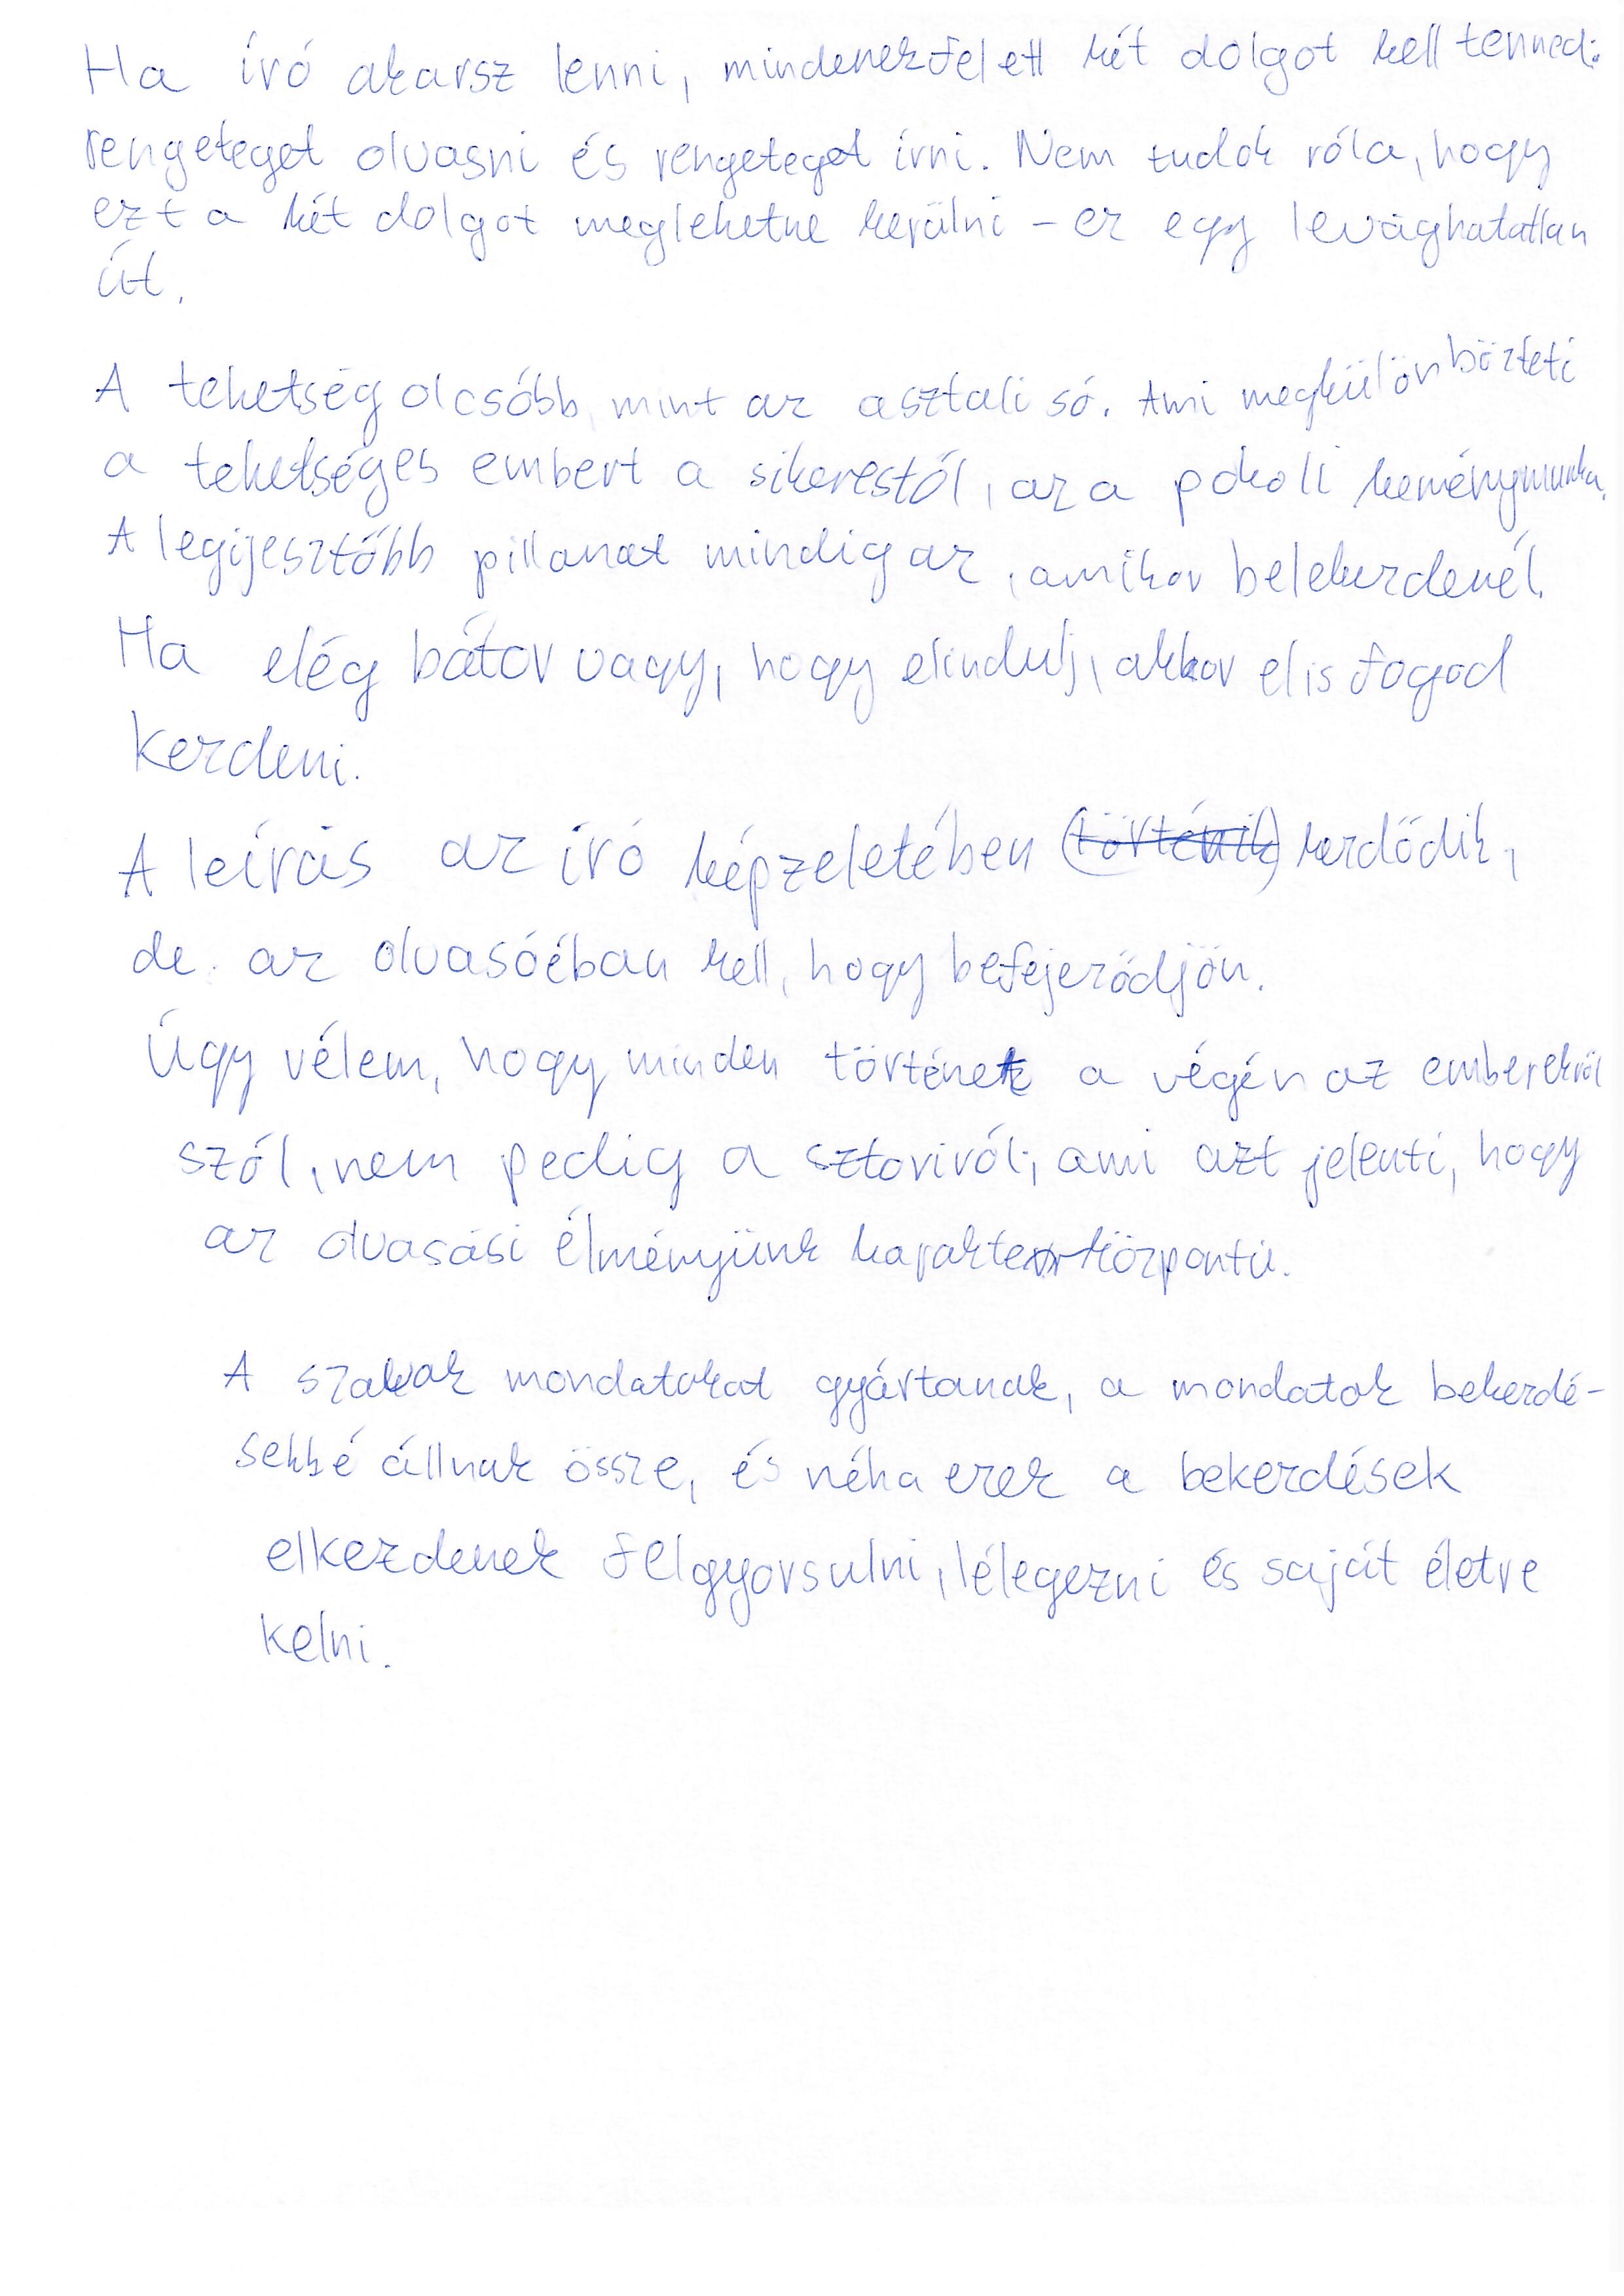 Ha író akarsz lenni, mindenekfelett két dolgot kell tenned:
rengeteget olvasni és rengeteget írni. Nem tudok róla, hogy
ezt a két dolgot meglehetne kerülni – ez egy levághatatlan
út.
A tehetség olcsóbb, mint az asztali só. Ami megkülönbözteti
a tehetséges embert a sikerestől, az a pokoli kemény munka.
A legijesztőbb pillanat mindig az, amikor belekezdenél.
Ha elég bátor vagy, hogy elindulj, akkor el is fogod
kezdeni.
A leírás az író képzeletében (történik) kezdődik,
de az olvasóéban kell, hogy befejeződjön.
Úgy vélem, hogy minden történet a végén az emberekről
szól, nem pedig a sztoriról, ami azt jelenti, hogy
az olvasási élményünk karakter-központú.
A szavak mondatokat gyártanak, a mondatok bekezdé-
sekké állnak össze, és néha ezek a bekezdések
elkezdenek felgyorsulni, lélegezni és saját életre
kelni.